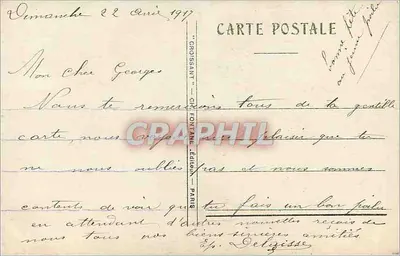 Dimanche 22 Avril 1917
CARTE POSTALE
bonne fête
au jeune poilu
Mon cher Georges
Nous te remercions tous de ta gentille
carte, nous voyons avec plaisir que tu
ne nous oublies pas et nous sommes
contents de voir que tu fais un bon poilu
en attendant d'autres nouvelles reçois de
nous tous nos biens sincères amitiés
"CROISSANT" - FONTANE, Éditeur - PARIS
CPAPHIL